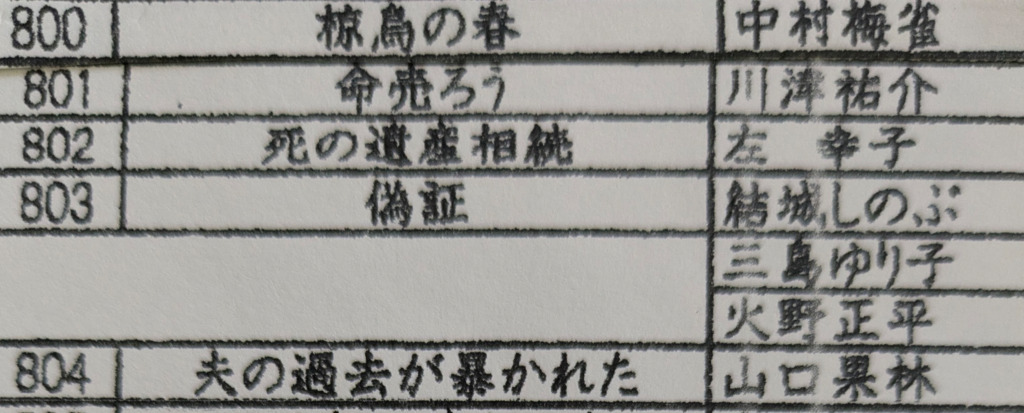 800 椋鳥の春 中村梅雀
801 命売ろう 川津祐介
802 死の遺産相続 左 幸子
803 偽証 結城しのぶ
三島ゆり子
火野正平
804 夫の過去が暴かれた 山口果林